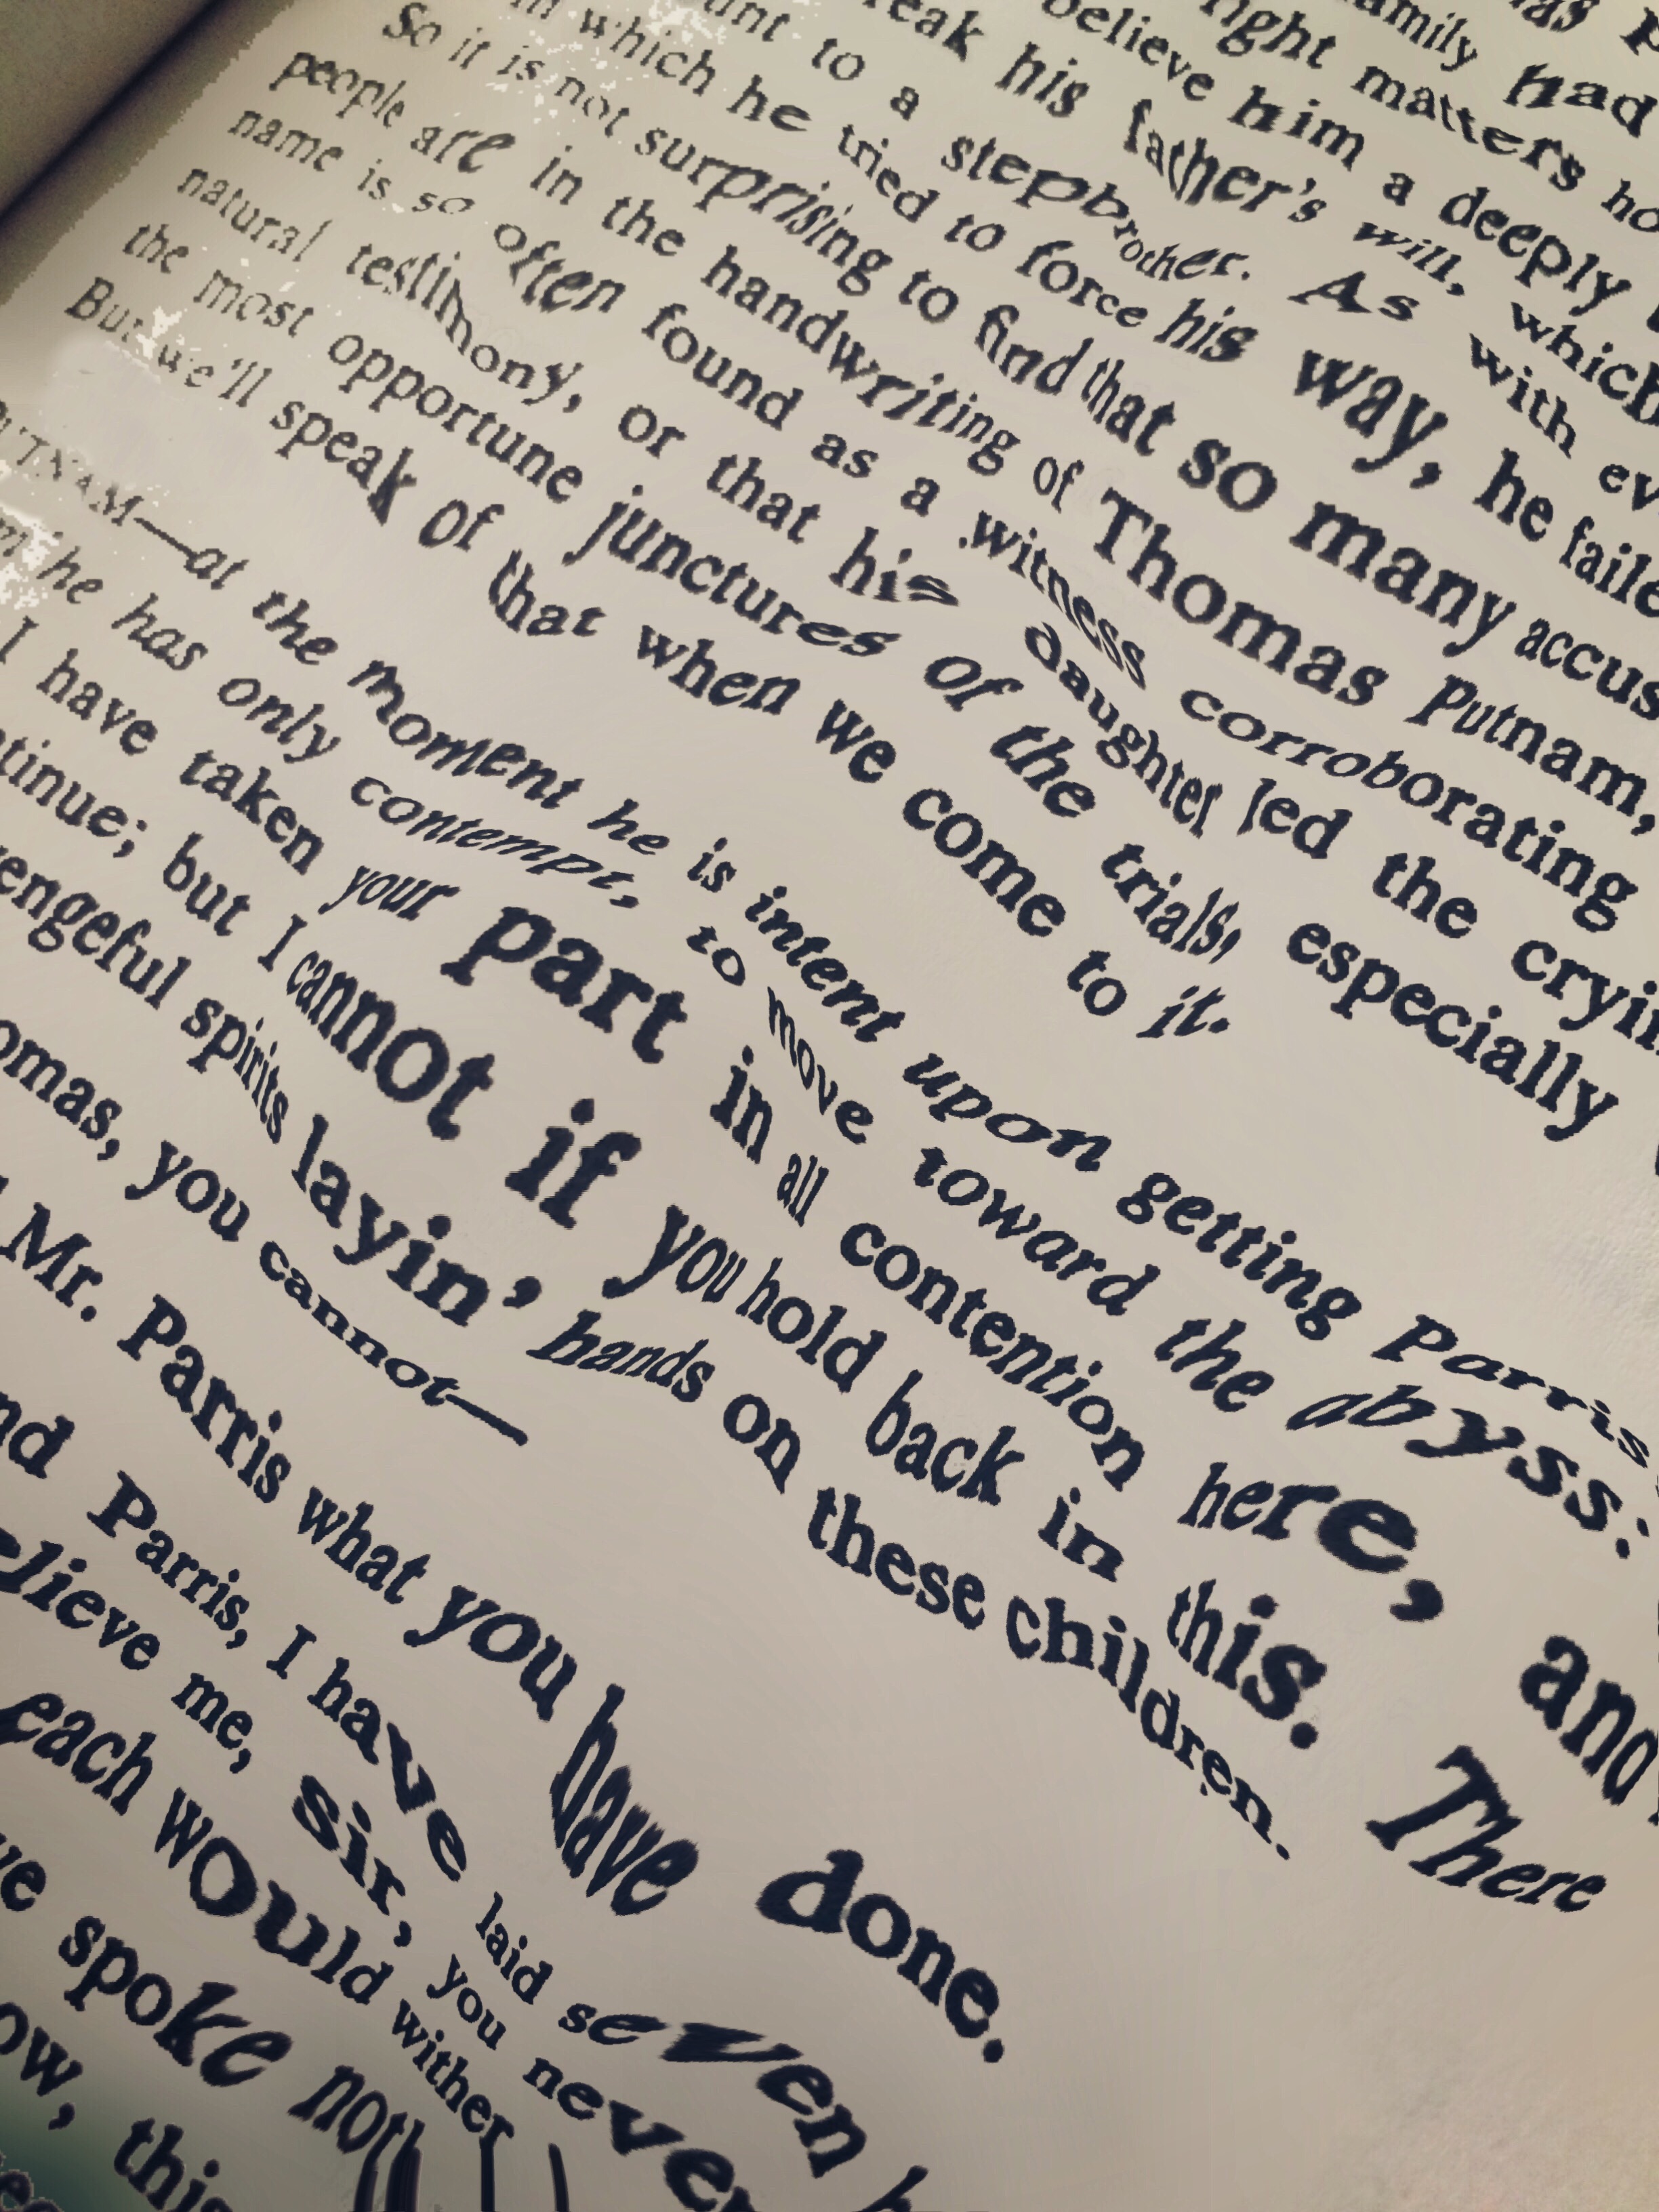 as
family had
right matters
believe him a deeply
eak his father's will, which
unt to a stepbrother. As with ev
which he tried to force his way, he faile
So it is not surprising to find that so many accus
people are in the handwriting of Thomas Putnam,
name is so often found as a witness corroborating
natural testimony, or that his daughter led the cryin
the most opportune junctures of the trials, especially
But we'll speak of that when we come to it.
PUTNAM—at the moment he is intent upon getting Parris
m he has only contempt, to move toward the abyss:
I have taken your part in all contention here, and
tinue; but I cannot if you hold back in this. There
engeful spirits layin' hands on these children.
omas, you cannot—
Mr. Parris what you have done.
nd Parris, I have laid seven
elieve me, sir, you never
each would wither
ve spoke noth
ow, this